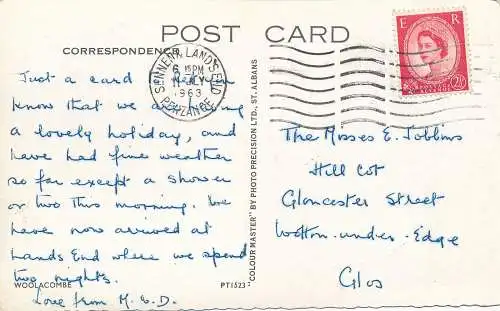 POST CARD
CORRESPONDENCE
Just a card
know that we are
a lovely holiday, and
have had fine weather
so far except a shower
or two this morning. We
have now arrived at
Lands End where we spend
two nights.
Love from M. & D.
WOOLACOMBE
PT1523
"COLOUR MASTER" BY PHOTO PRECISION LTD., ST. ALBANS
SENNEN LANDS END
6 15PM
11 JLY
1963
PENZANCE
E R
POSTAGE
2½D
The Misses E. Joblins
Hill Cot
Gloucester Street
Wotton-under-Edge
Glos